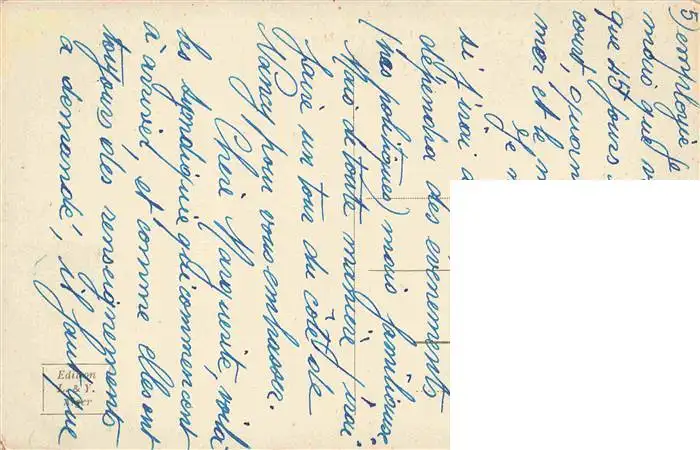 5) employée je
mais que v
que 15 jours
court, quan
mer et le m
Je n
si j'irai a
dépendra des évènements
(pas politiques) mais familiaux
Mais de toute manière j'irai
faire un tour du côté de
Nancy pour vous embrasser.
Chère Marguerite, voilà
les syndiquées qui commencent
à arriver, et comme elles ont
toujours des renseignements
à demander, il faut que
Edition
L. & Y.